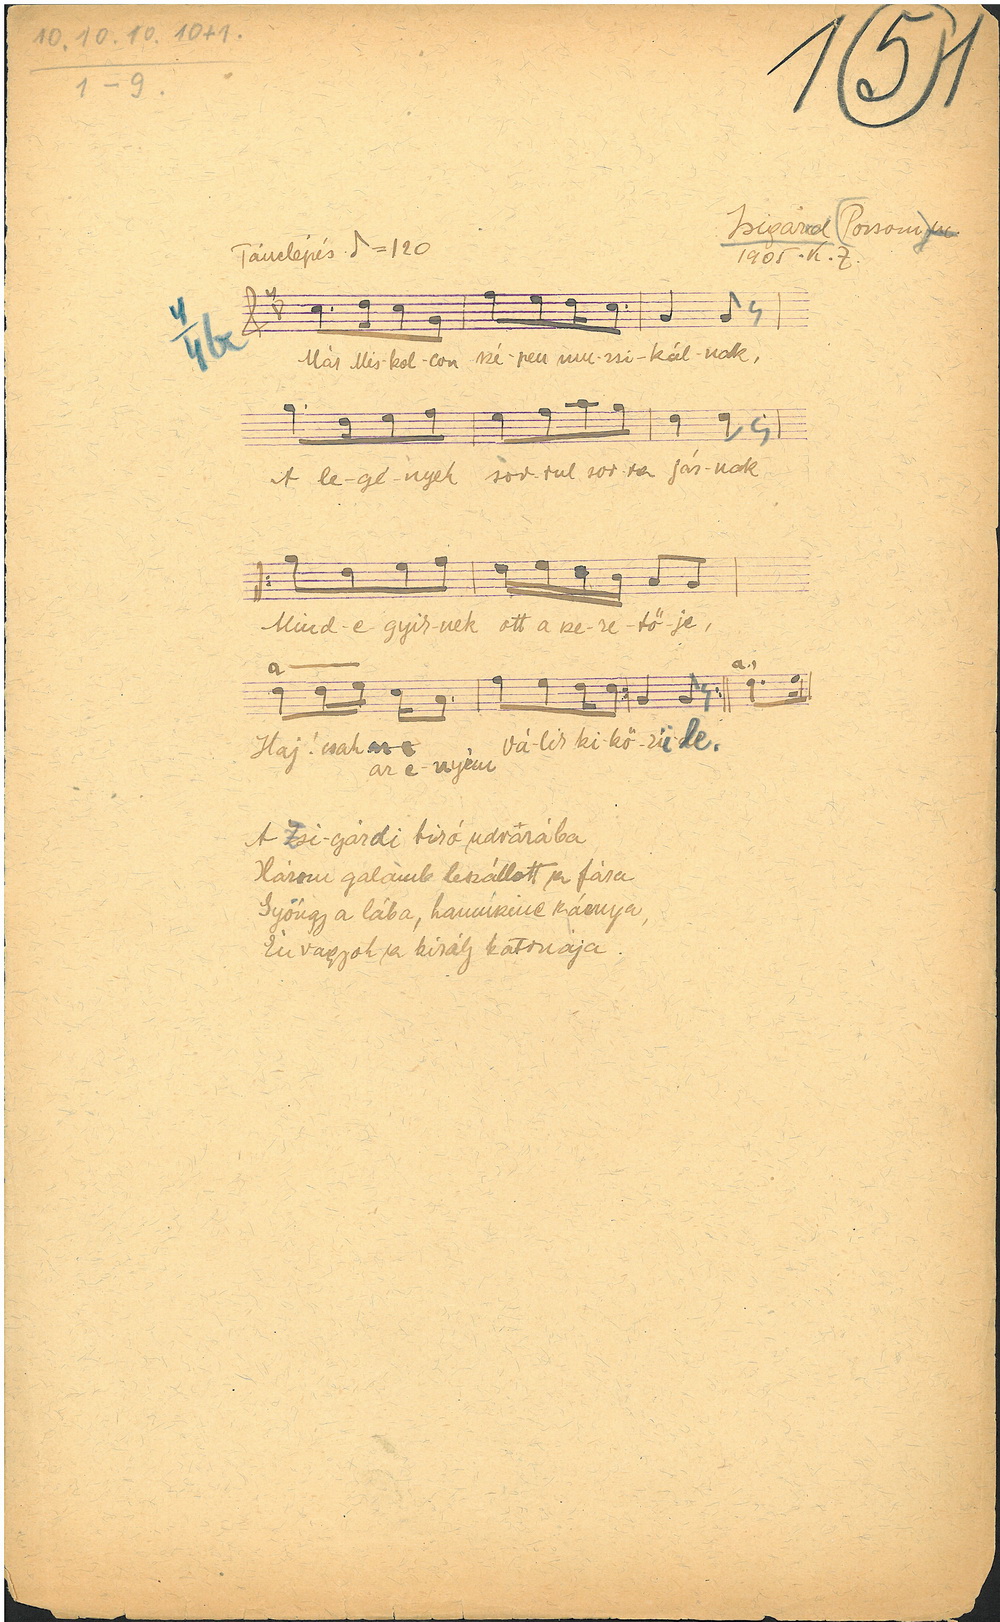 10. 10. 10. 10+1.
1 - 9.
151
Zsigárd (Pozsony)
Tánclépés ♪=120
1905. K. Z.
4/4 be
Már Mis-kol-con szé-pen mu-zsi-kál-nak,
A le-gé-nyek sor-rul sor-ra jár-nak
Mind-e gyik-nek ott a sze-re-tő-je,
a
a.,
Haj! csak az e-nyém vá-lik ki kö-zü-le.
A Zsi-gárdi biró udvarába
Három galamb leszállott a fára
Gyöngy a lába, harminc
Én vagyok a király katonája.